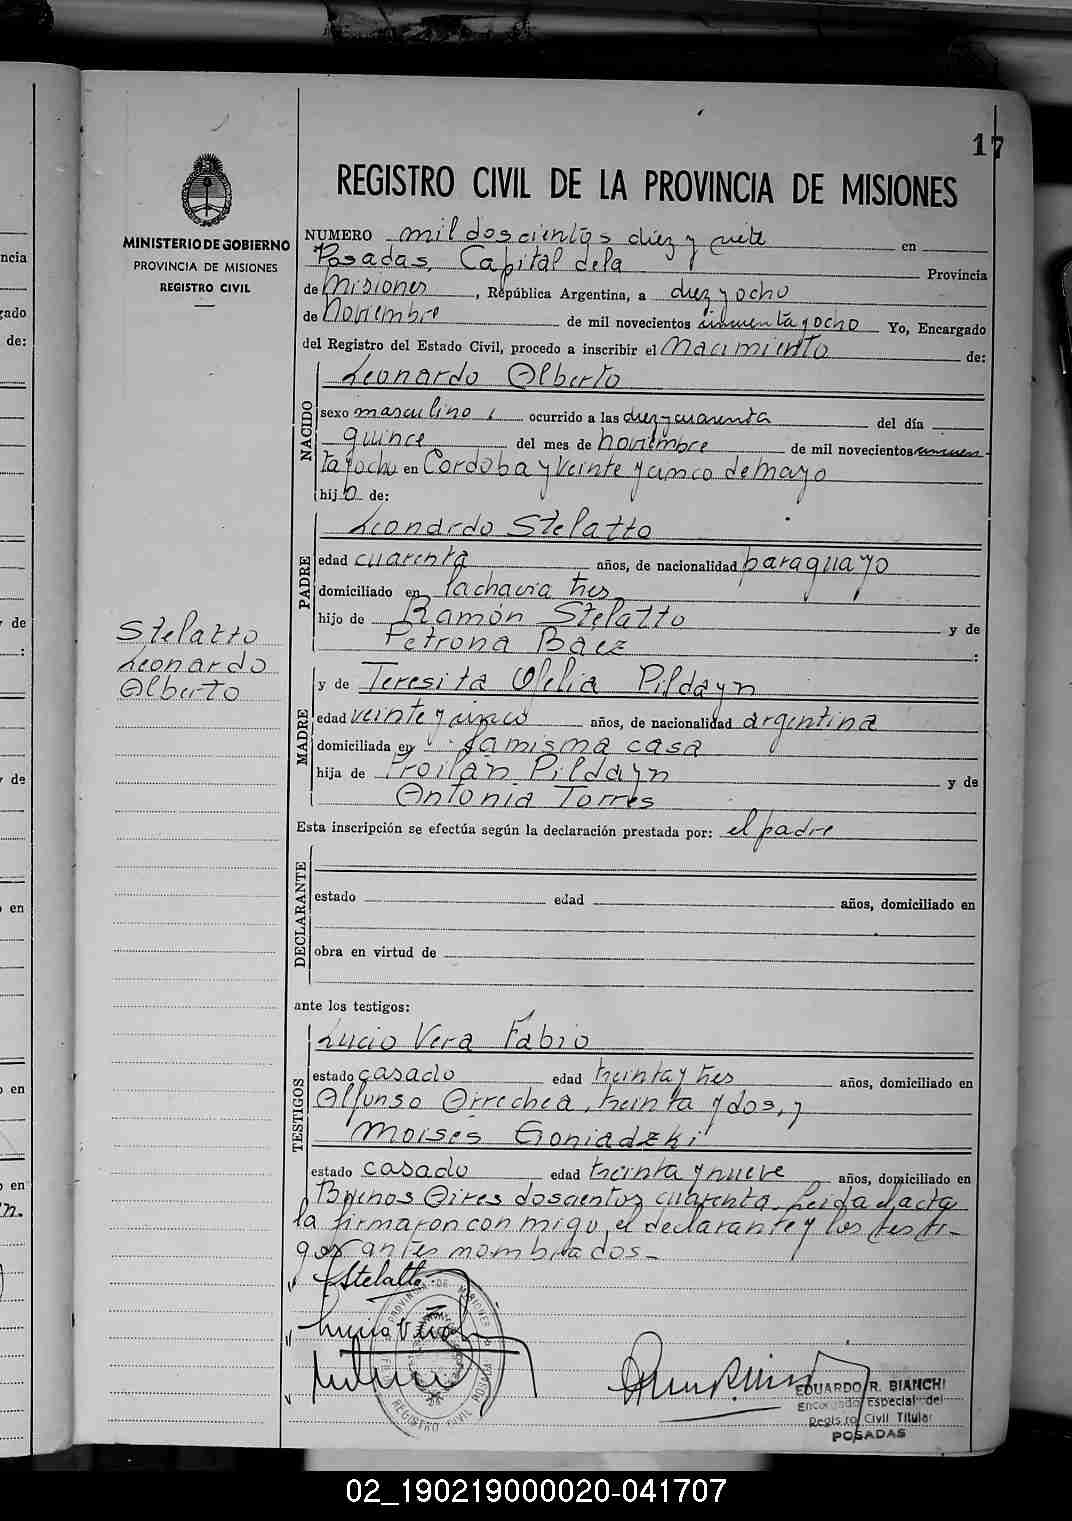 17
REGISTRO CIVIL DE LA PROVINCIA DE MISIONES
MINISTERIO DE GOBIERNO
PROVINCIA DE MISIONES
REGISTRO CIVIL
NUMERO mil doscientos diez y siete en
Posadas, Capital de la Provincia
de Misiones, República Argentina, a diez y ocho
de Noviembre de mil novecientos cincuenta y ocho Yo, Encargado
del Registro del Estado Civil, procedo a inscribir el Nacimiento de:
NACIDO
Leonardo Alberto
sexo masculino, ocurrido a las diez y cuarenta del día
quince del mes de noviembre de mil novecientos cincuen-
ta y ocho en Cordoba y Veinte y cinco de Mayo
hijo de:
PADRE
Leonardo Stelatto
edad cuarenta años, de nacionalidad paraguayo
domiciliado en la chacra tres
hijo de Ramón Stelatto y de
Petrona Baez :
Stelatto
Leonardo
Alberto
MADRE
y de Teresita Ofelia Pildayn
edad veinte y cinco años, de nacionalidad argentina
domiciliada en la misma casa
hija de Froilán Pildayn y de
Antonia Torres
Esta inscripción se efectúa según la declaración prestada por: el padre
DECLARANTE
estado edad años, domiciliado en
obra en virtud de
ante los testigos:
TESTIGOS
Lucio Vera Fabio
estado casado edad treinta y tres años, domiciliado en
Alfonso Arrechea, treinta y dos, y
Moisés Goniadzki
estado casado edad treinta y nueve años, domiciliado en
Buenos Aires doscientos cuarenta. Leida el acta
la firmaron conmigo, el declarante y los testi-
gos antes nombrados.-
Stelatto
PROVINCIA DE MISIONES
REGISTRO CIVIL POSADAS
EDUARDO R. BIANCHI
Encargado Especial del
Registro Civil Titular
POSADAS
ncia
gado
de:
y de
:
y de
o en
o en
o en
n.
02_190219000020-041707